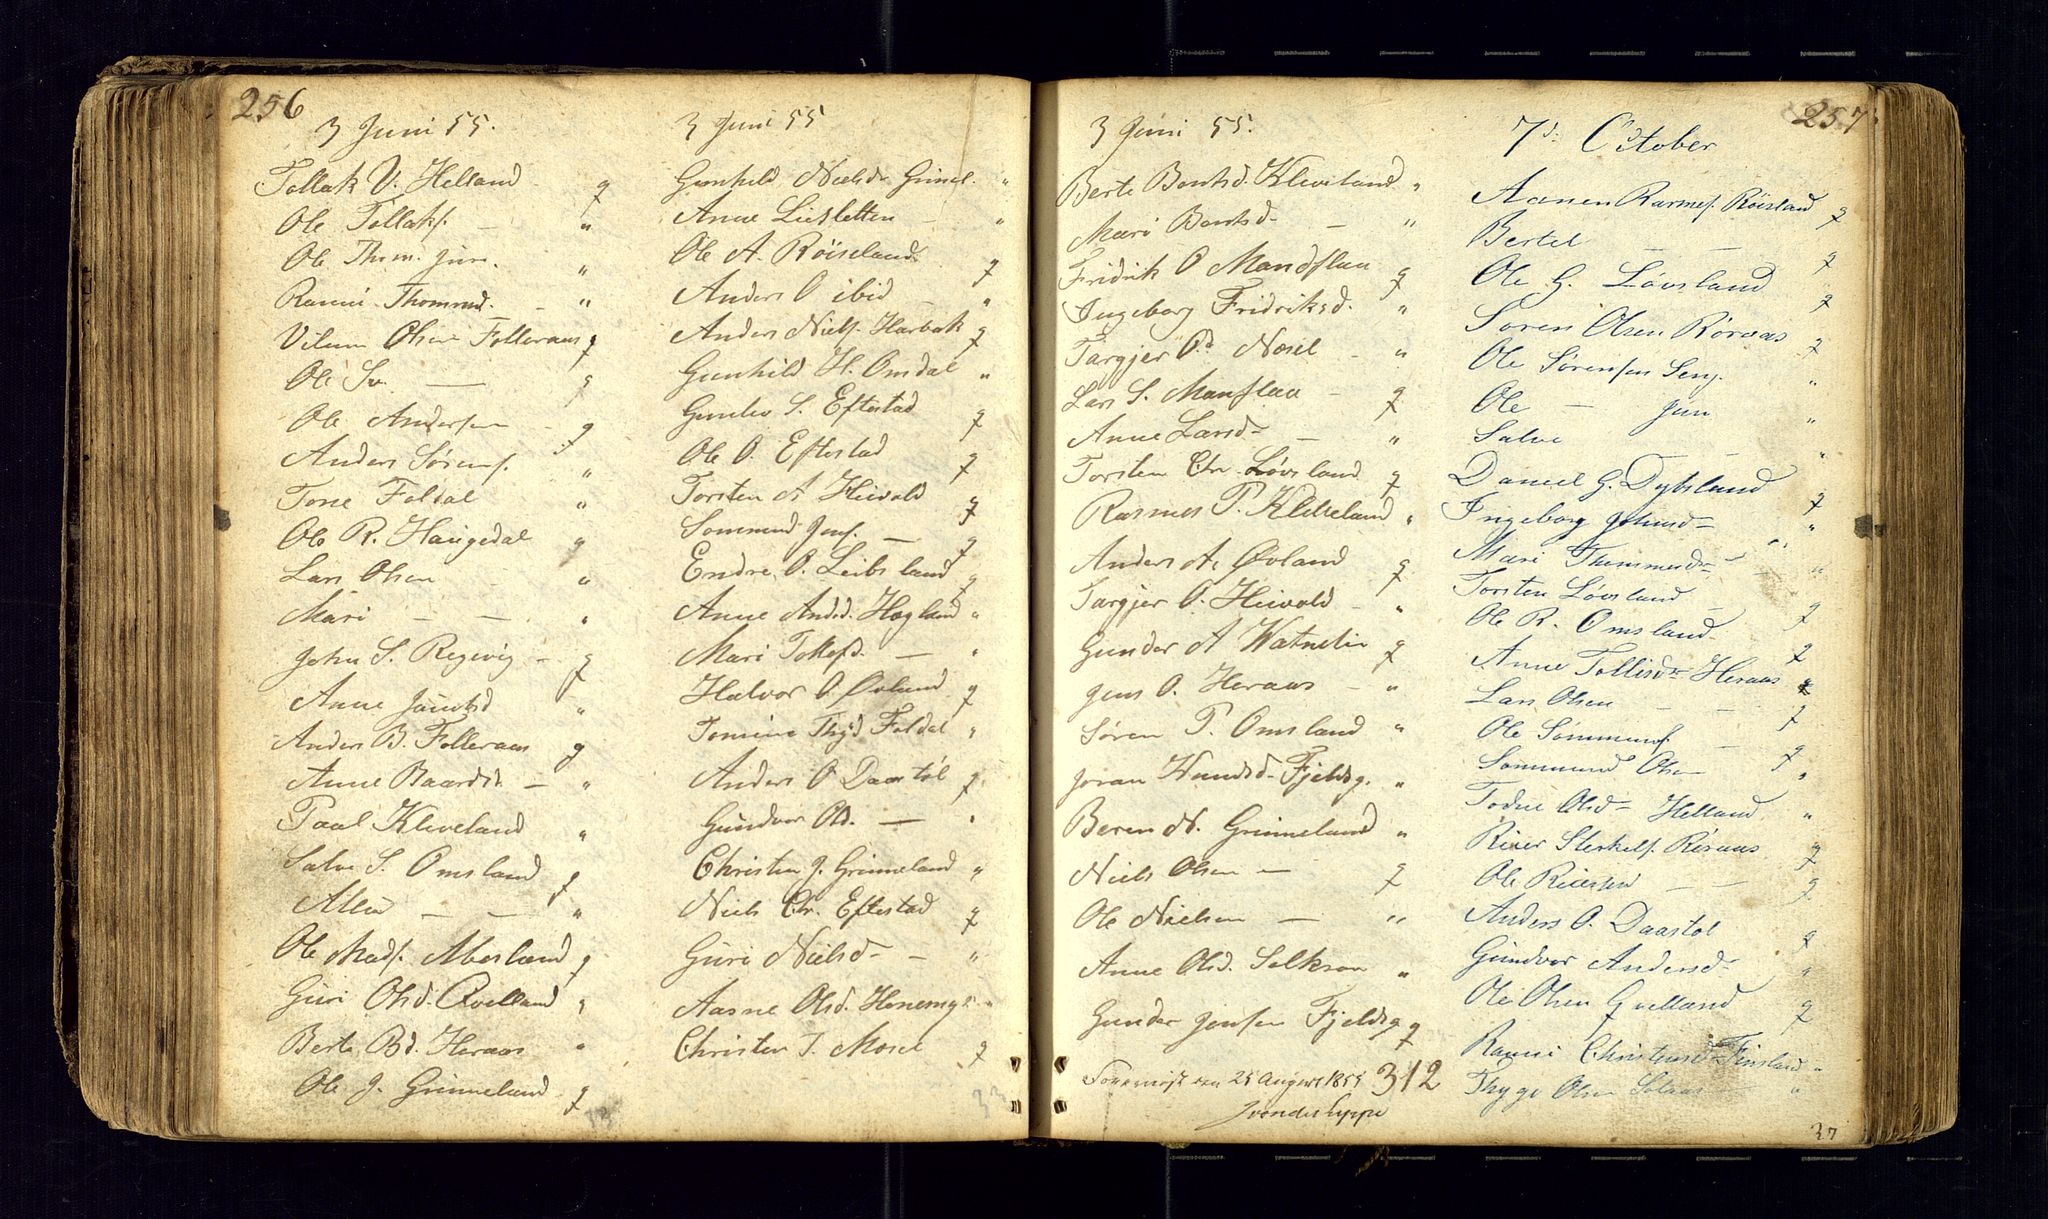 256
3 Juni 55.
Tollak V. Helland g
Ole Tollaks. — "
Ole Thom. jun. "
Ranni Thommd. — "
Vilum Olsen Folleraas g
Ole Sv. — g
Ole Andersen - g
Anders Sørens. "
Tone Foldal "
Ole R. Haugedal g
Lars Olsen - "
Mari — — "
John S. Regevig - g
Anne Jacobsd "
Anders B. Folleraas g
Anne Baardsd. — "
Paal Kleveland "
Salve S. Omsland g
— — "
Ole Mads. g
Guri Olsd. "
Berte Bd. Heraas "
Ole J. Grimeland g
3 Juni 55
Gunhild Nielsdr "
Anne Liesletten — "
Ole A. Røiseland g
Anders O ibid — "
Anders Niels. Harbak g
Gunhild H. Omdal "
Gunder S. Eftestad g
Ole O. Eftestad g
Torsten A Heivold g
Sommund Jens. — g
Endre O. Leibsland g
Anne Andsd. Høgland "
Mari Tollefsd. — "
Halvor O Øvland g
Tomine Foldal "
Anders O Daastøl g
Gundvor Old. — "
Christen J. Grimeland "
Niels Chr. Eftestad g
Guri Nielsd — "
Aasne Olsd. "
Christen T. Mosel g
33
257
3 Juni 55.
Berte Bentsd. Kleveland "
Mari Bentsd — "
Fridrik O Mandflaa g
Ingeborg Fridriksd. "
Targjer Od Nosel - "
Lars S. Manflaa - g
Anne Larsd — "
Torsten Chr. Løvsland g
Rasmus P. "
Anders A. Øvland g
Targjer O. Heivold - "
Gunder A Watnelie g
Jens O. Heraas - "
Søren P. Omsland "
Joran Knudsd. Fjeldsg. "
Beren N. Grimeland "
Niels Olsen — g
Ole Nielsen — "
Anne Olsd. "
Gunder Jensen Fjeldsg g
25 August 1855 312
7d October
Aanen Rasmus. Røisland g
Bertel — — g
Ole G. Løvsland g
Søren Olsen Røraas g
Ole Sørensen Sen. "
Ole — jun "
Salve "
Daniel G. Dybsland g
Ingeborg — "
Mari Thommesd — "
Torsten Løvsland — g
Ole R. Omsland g
Anne Tollisd Heraas "
Lars Olsen — — g
Ole Sømmuns. — g
Sommund Olsen "
Todne Olsd Helland "
Reier Sterkels. Røraas g
Ole Reiersen — — g
Anders O. Daastøl g
Gundvor Andersd "
Ole Olsen g
Ranni Christensd Finsland "
Thyge Olsen — "
37